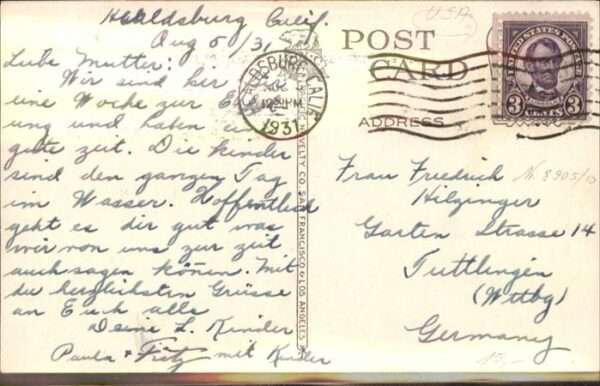 Healdsburg Calif.
Aug 5/31
Liebe Mutter:
Wir sind hier
eine Woche zur
ung und haben eine
gute zeit. Die kinder
sind den ganzen Tag
im Wasser. Hoffentlich
geht es dir gut was
wir von uns zur zeit
auch sagen können. Mit
den herzlichsten Grüsse
an Euch alle
Deine L. Kinder
Paula + Fritz mit Kinder
USA
POST
CARD
ADDRESS
HEALDSBURG, CALIF.
AUG
12 30 PM
1931
UNITED STATES POSTAGE
3 3
CENTS
NOVELTY CO. SAN FRANCISCO & LOS ANGELES
Frau Friedrich
N. 8905/10
Hilzinger
Garten Strasse 14
Tuttlingen
(Wttbg)
Germany